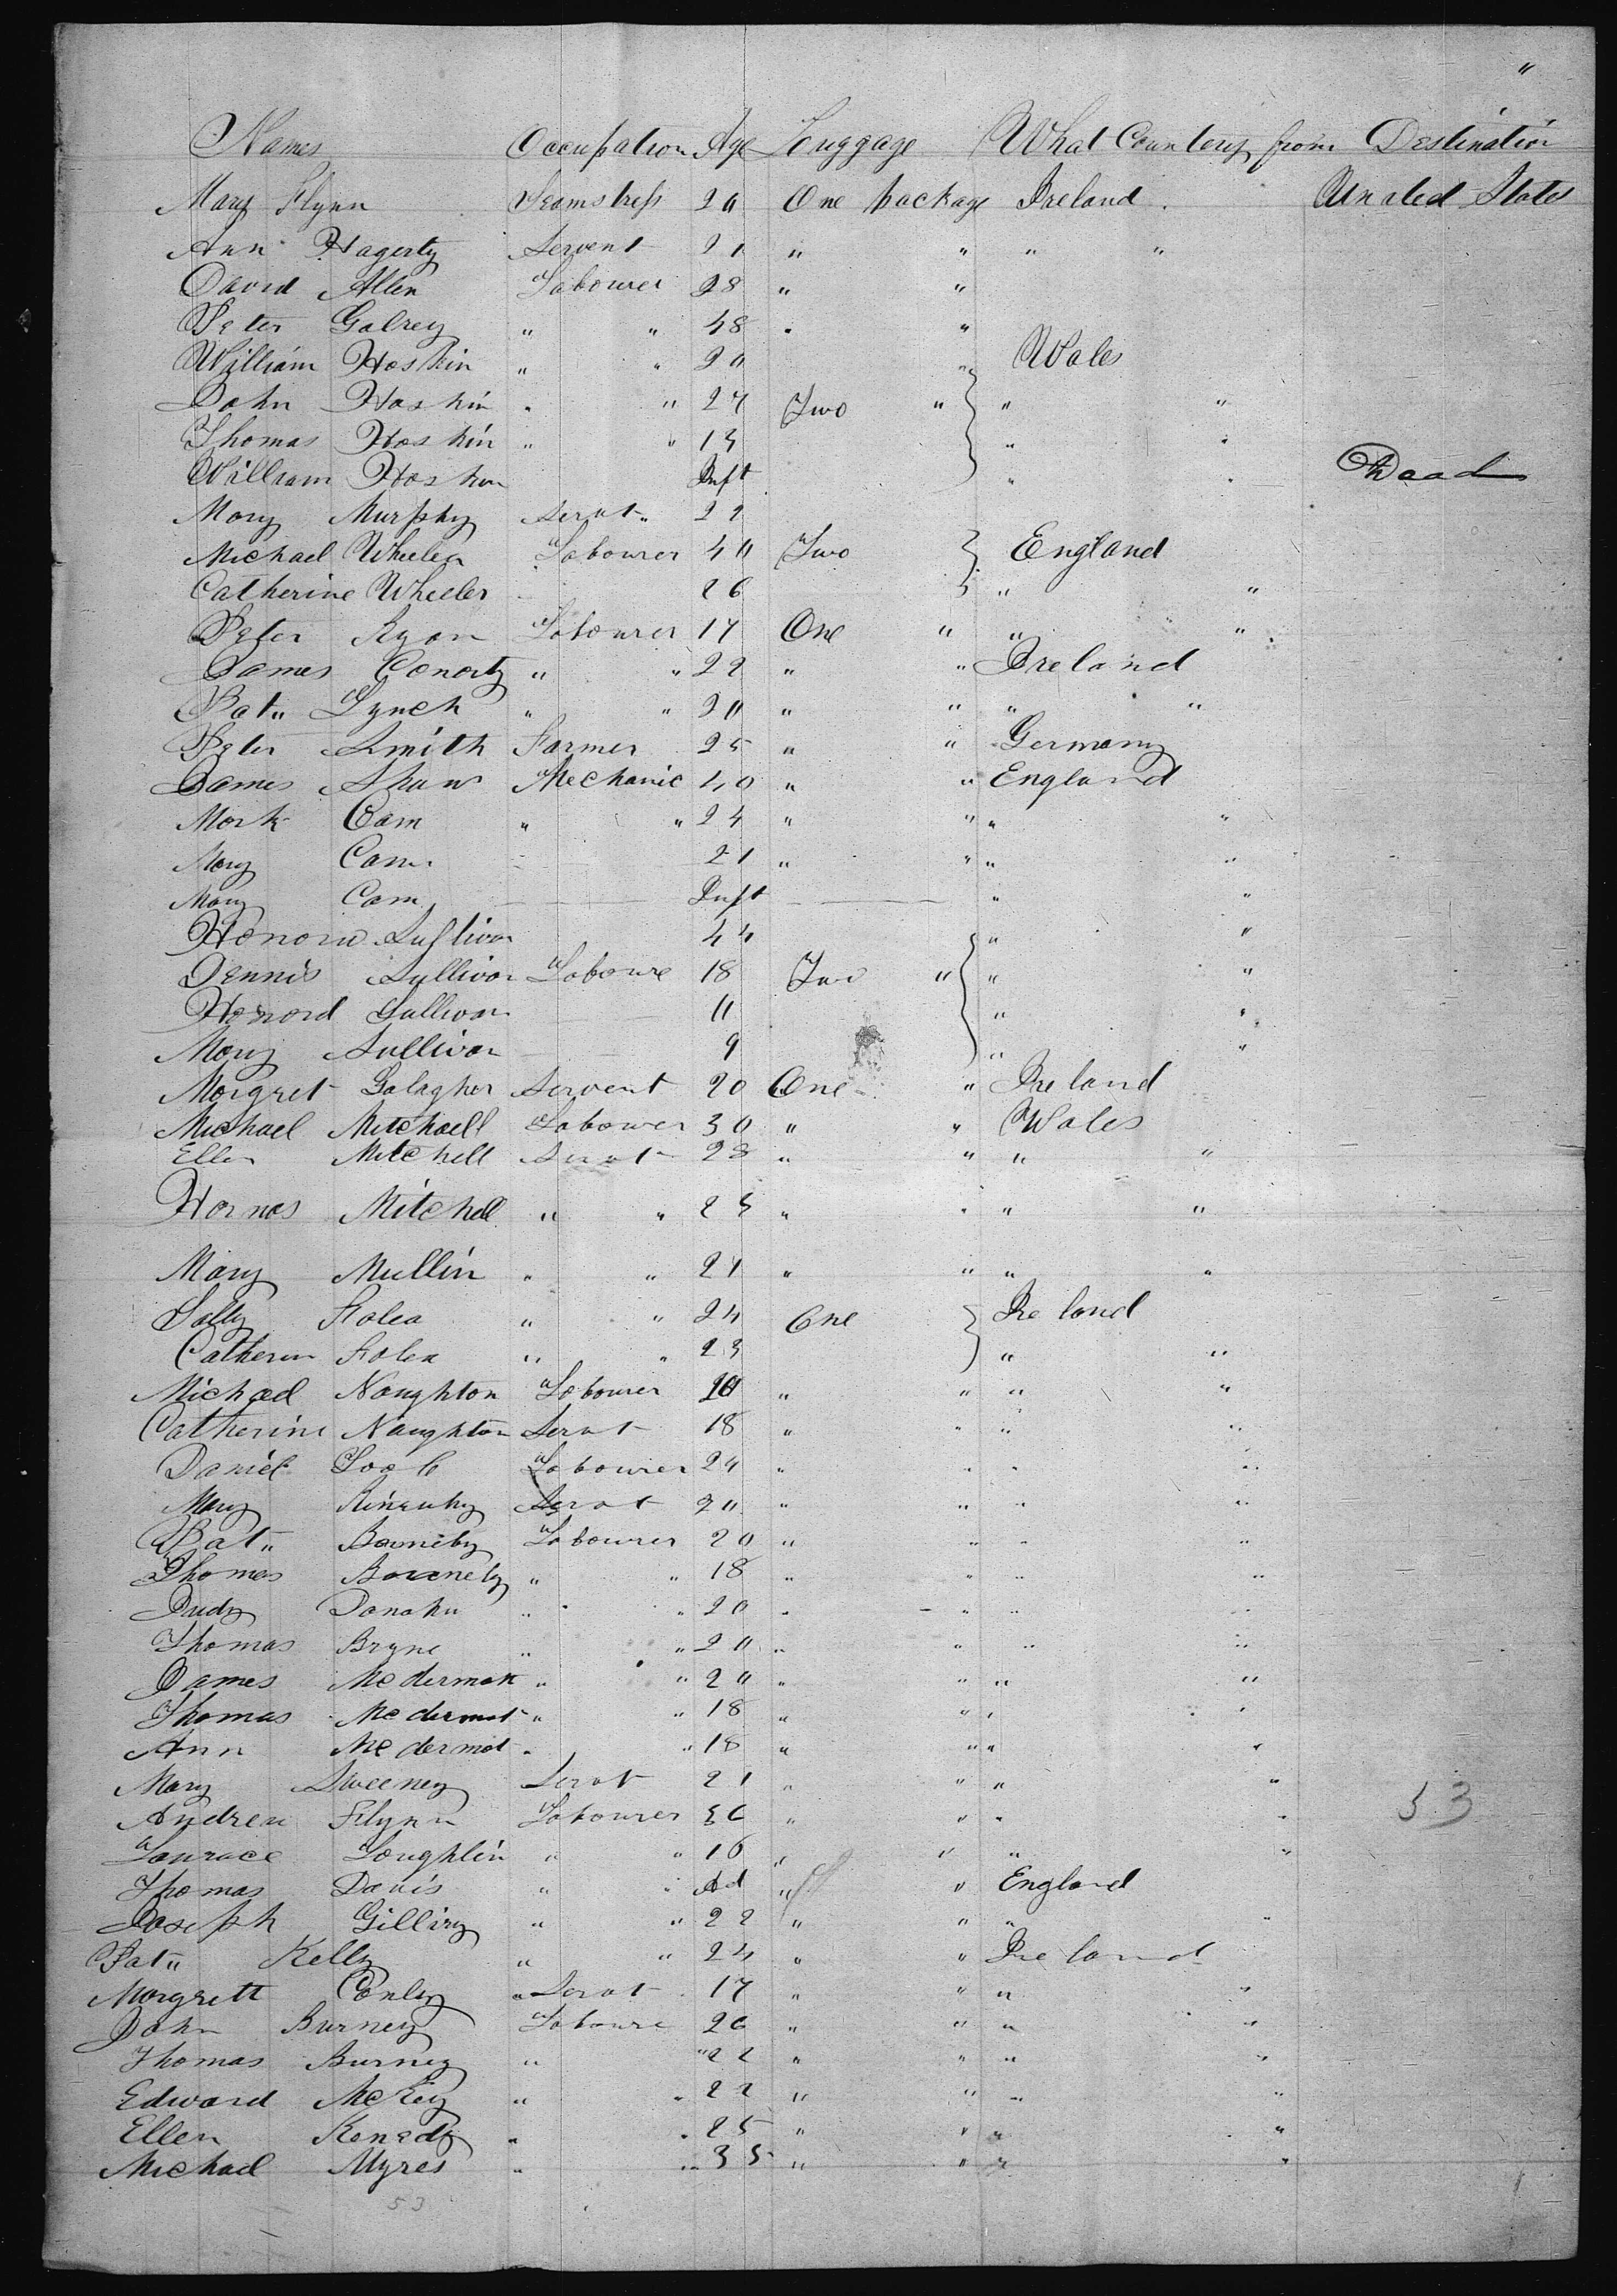 "
Names Occupation Age Luggage What Country from Destination
Mary Flynn Seamstress 20 One package Ireland Unated States
Ann Hagerty Servent 21 " " " "
David Allen Labourer 28 " "
Peter Galrey " " 48 " "
William Hoskin " " 20 " Wales
John Hoskin " " 27 Two " " "
Thomas Hoskin " " 13 " "
William Hoskin Inft " " Dead
Mary Murphy Servt " 22
Michael Wheeler Labourer 40 Two England
Catherine Wheeler 26 " "
Peter Ryan Labourer 17 One " " "
James Conorty " " 22 " " Ireland
Pat " Lynch " " 20 " " " "
Peter Smith Farmer 25 " " Germany
James Shaw Mechanic 40 " " England
Mark Cam " " 24 " " " "
Mary Cam 21 " " " "
Mary Cam Inft " "
Sullivan 44 " "
Dennis Sullivan Laboure 18 Two " " "
Honord Sullivan 11 " "
Mary Sullivan 9 " "
Margret Galagher Servent 20 One " Ireland
Michael Mitchaell Labourer 30 " " Wales
Ellen Mitchell Servt 28 " " " "
Mitchell " " 23 " " " "
Mary Mullin " " 21 " " " "
Sally Folea " " 24 One Ireland
Catheren Folea " " 23 " "
Michael Naughton Labourer 20 " " " "
Catherine Naughton Servt 18 " " " "
Daniel Labourer 24 " " " "
Mary Servt 20 " " " "
Pat " Labourer 20 " " " "
Thomas " " 18 " " " "
Judy Donahu " " 20 " " " "
Thomas Bryne " " 20 " " " "
James Mc dermott " " 20 " " " "
Thomas Mc dermot " " 18 " " " "
Ann Mc dermot " " 18 " " " "
Mary Sweeney Servt 21 " " " "
Andrew Flynn Labourer 36 " " " " 53
Laurace Loughlin " " 16 " " " "
Thomas Davis " " Ad " " England
Joseph Gilliry " " 22 " " " "
Pat " Kelly " " 24 " " Ireland
Margrett Conley " Servt 17 " " " "
John Burney Laboure 26 " " " "
Thomas Burney " " 22 " " " "
Edward McKey " " 22 " " " "
Ellen Kenedy " " 25 " " " "
Michael Myres " " 35 " " " "
53